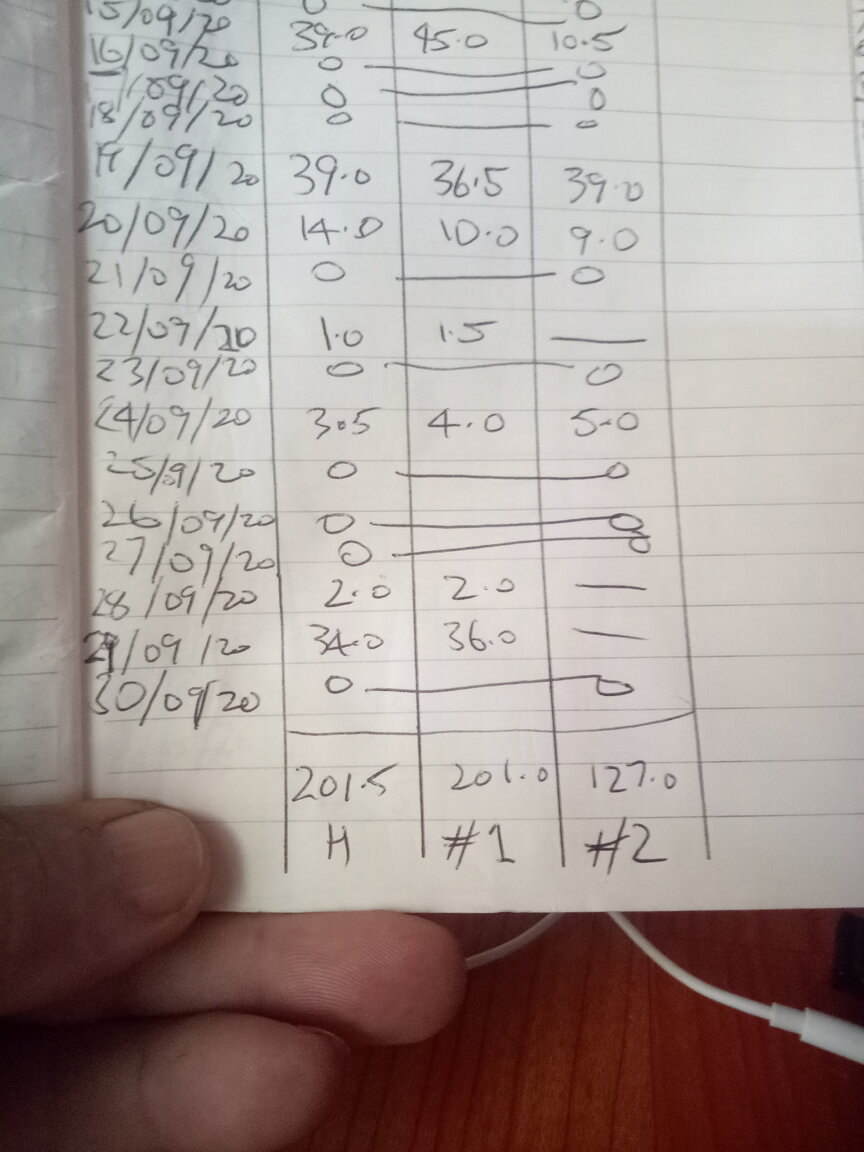 15/09/20 0 0
16/09/20 39.0 45.0 10.5
17/09/20 0 0
18/09/20 0 0
0 0
19/09/20 39.0 36.5 39.0
20/09/20 14.0 10.0 9.0
21/09/20 0 — 0
22/09/20 1.0 1.5 —
23/09/20 0 — 0
24/09/20 3.5 4.0 5.0
25/9/20 0 — 0
26/09/20 0 — 0
27/09/20 0 — 0
28/09/20 2.0 2.0 —
29/09/20 34.0 36.0 —
30/09/20 0 — 0
201.5 201.0 127.0
H #1 #2